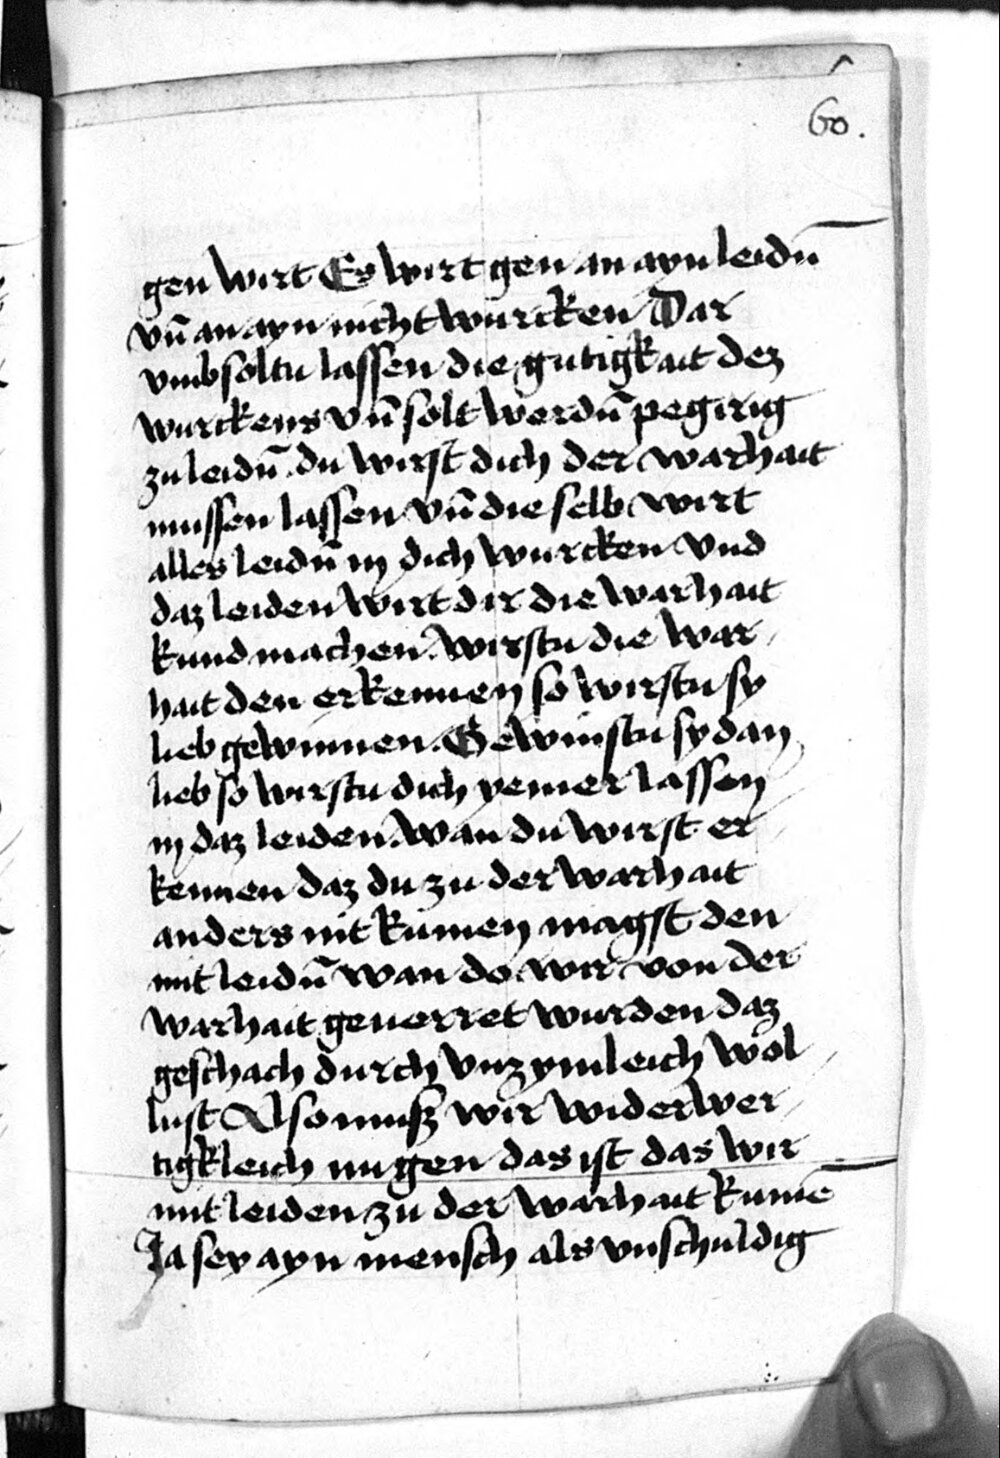 60.
gen wirt Es wirt gen an ayn leidn̄
vn̄ an ayn nicht wurcken Dar
vmb soltu lassen die gutigkait dez
wurckens vn̄ solt werdn̄ pegirig
zu leidn̄ du wirst dich der warhait
mussen lassen vn̄ die selb wirt
alles leidn̄ in dich wurcken vnd
daz leiden wirt dir die warhait
kund machen. wirstu die war
hait den erkennen so wirstu sy
lieb gewinnen. Gewinstu sy dan
lieb so wirstu dich yemer lassen
in daz leiden. wan du wirst er
kennen daz du zu der warhait
anders nit kumen magst den
mit leidn̄ wan do wir von der
warhait geuerret wurden daz
geschach durch vnzymleich wol
lust Also musz wir widerwer
tigkleich nugen das ist das wir
mit leiden zu der warhait kumē
Ja sey ayn mensch als vnschuldig